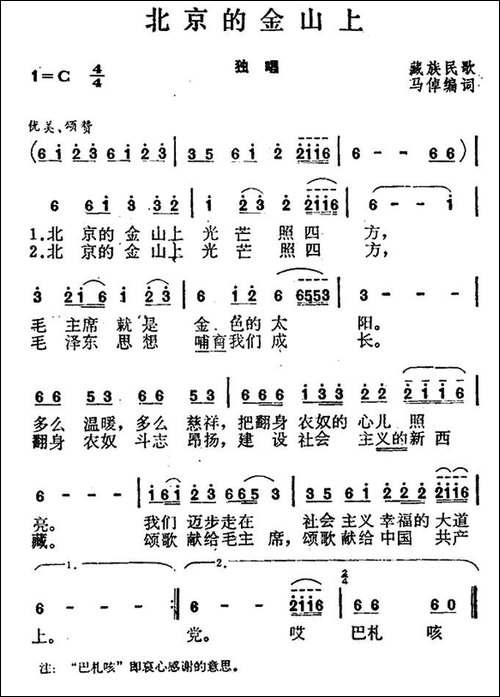 北京的金山上
独唱
1=C 4/4
藏族民歌
马倬编词
优美、颂赞
(6i 23 6i23 | 35 6i 2 2116 | 6 - - 66) |
6 6i 3 32 | i 23 2116 | 6 - - i |
1.北京的金山上光芒照四方，
2.北京的金山上光芒照四方，
3 2i6i i 23 | 6 i2 6 6553 | 3 - - - |
毛主席就是金色的太阳。
毛泽东思想哺育我们成长。
66 53 23 53 | 666 i33 22 2116 |
多么温暖，多么慈祥，把翻身农奴的心儿照
翻身农奴斗志昂扬，建设社会主义的新西
6 - - - |
亮。我们迈步走在社会主义幸福的大道
藏。颂歌献给毛主席，颂歌献给中国共产
1.
2.
6 - - - :| 6 - - 2ii6 | 2/4 66 60 ‖
上。党。哎巴札咳
注：“巴札咳”即衷心感谢的意思。